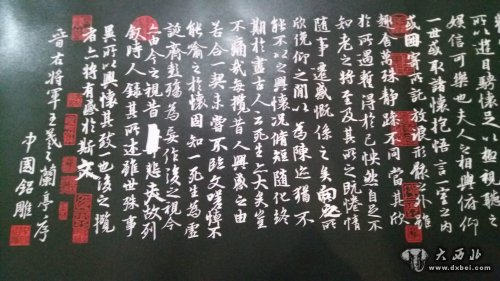 所以遊目騁懷足以極視聽之
娛信可樂也夫人之相與俯仰
一世或取諸懷抱悟言一室之內
或因寄所託放浪形骸之外雖
趣舍萬殊靜躁不同當其欣
於所遇暫得於己怏然自足不
知老之將至及其所之既惓情
隨事遷感慨係之矣向之所
欣俛仰之間以為陳迹猶不
能不以之興懷況脩短隨化終
期於盡古人云死生亦大矣豈
不痛哉每攬昔人興感之由
若合一契未嘗不臨文嗟悼不
能喻之於懷固知一死生為虛
誕齊彭殤為妄作後之視今
亦由今之視昔悲夫故列
敘時人錄其所述雖世殊事
異所以興懷其致一也後之攬
者亦將有感於斯文
晉右將軍王羲之蘭亭序
中國銘雕
大西北
www.dxbei.com